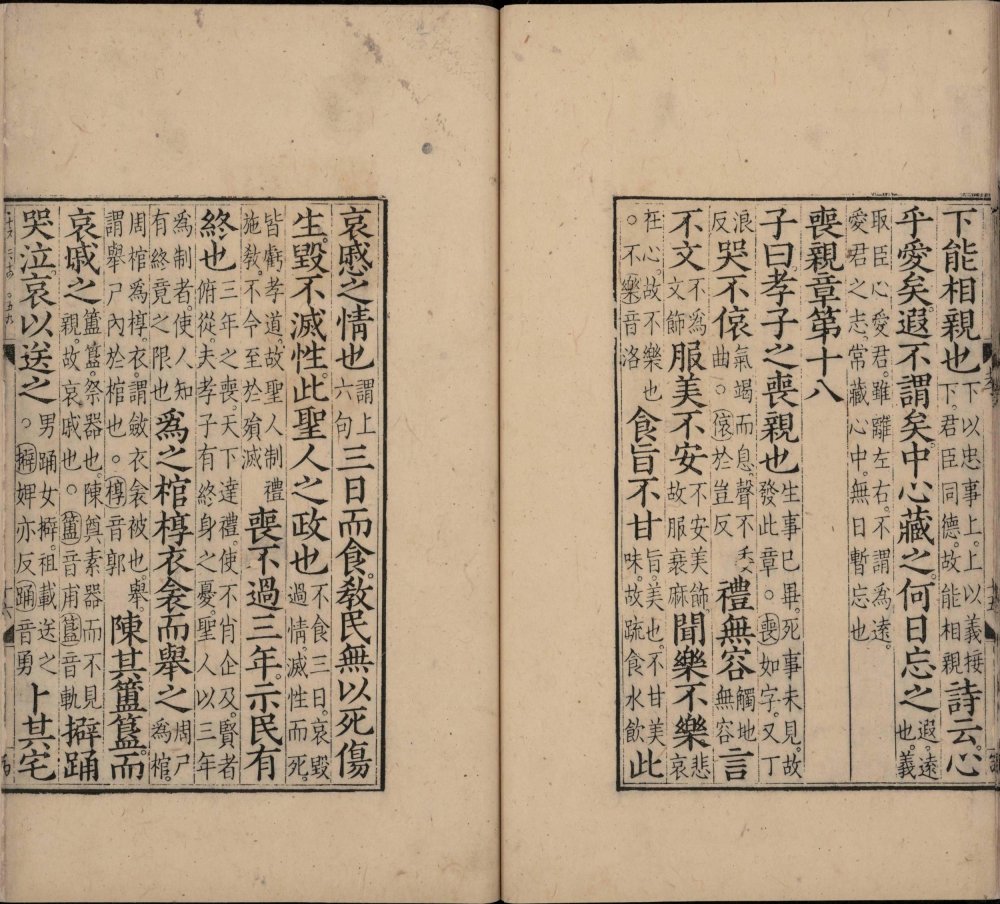 下能相親也下以忠事上。上以義接下。君臣同德。故能相親詩云。心
乎愛矣。遐不謂矣。中心藏之。何日忘之遐。遠也。義
取臣心愛君。雖離左右。不謂為遠。愛君之志。常藏心中。無日暫忘也
喪親章第十八
子曰。孝子之喪親也生事已畢。死事未見。故發此章。○喪如字。又丁
浪反哭不偯氣竭而息。聲不委曲。○偯於豈反禮無容觸地無容言
不文不為文飾服美不安不安美飾。故服衰麻聞樂不樂悲哀
在心。故不樂也○不樂音洛食旨不甘旨。美也。不甘美味。故疏食水飲此
哀慼之情也謂上六句三日而食。教民無以死傷
生。毀不滅性。此聖人之政也不食三日。哀毀過情。滅性而死。
皆虧孝道。故聖人制禮施教。不令至於殞滅喪不過三年。示民有
終也三年之喪。天下達禮。使不肖企及。賢者俯從。夫孝子有終身之憂。聖人以三年
為制者。使人知有終竟之限也為之棺椁衣衾而舉之周尸為棺。
周棺為椁。衣。謂斂衣。衾。被也。舉。謂舉尸內於棺也。○椁音郭陳其簠簋。而
哀慼之簠簋。祭器也。陳奠素器而不見親。故哀慼也。○簠音甫簋音軌擗踊
哭泣。哀以送之男踊女擗。祖載送之。○擗婢亦反踊音勇卜其宅